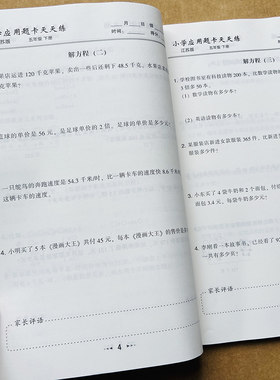 学应用题卡天天练
江苏版 五年级 下册
月 日 星
时间: 得分:
解方程 (二)
果店运进 120 千克苹果，卖出一些后还剩下 48.5 千克。水果店卖
蕉的单价是 56 元，是蛋糕单价的 2 倍。蛋糕的单价是多少元?
一只鸵鸟的奔跑速度是 54.3 千米/时，比一辆卡车的速度快 8.6 千米
这辆卡车的速度。
4. 小明买了 5 本《漫画大王》共付 45 元，每本《漫画大王》的单价是多少
家长评语
4
小学应用题卡天天练
江苏版 五年级 下册
解方程 (三)
1. 学校图书室有科技读物 200 本，比数学读物
3 倍多 50 本。
(1) 数学读物有多少本?
(2) 英语读物有多少本?
2. 某服装店新进女款服装 365 件，比
新进
3. 小东买了 4 袋牛奶和 2 个面包，付
面包 3.4 元，每袋牛奶多少元?
4. 李刚看一本故事书，已经看了 9
一共有多少页?
家长评语